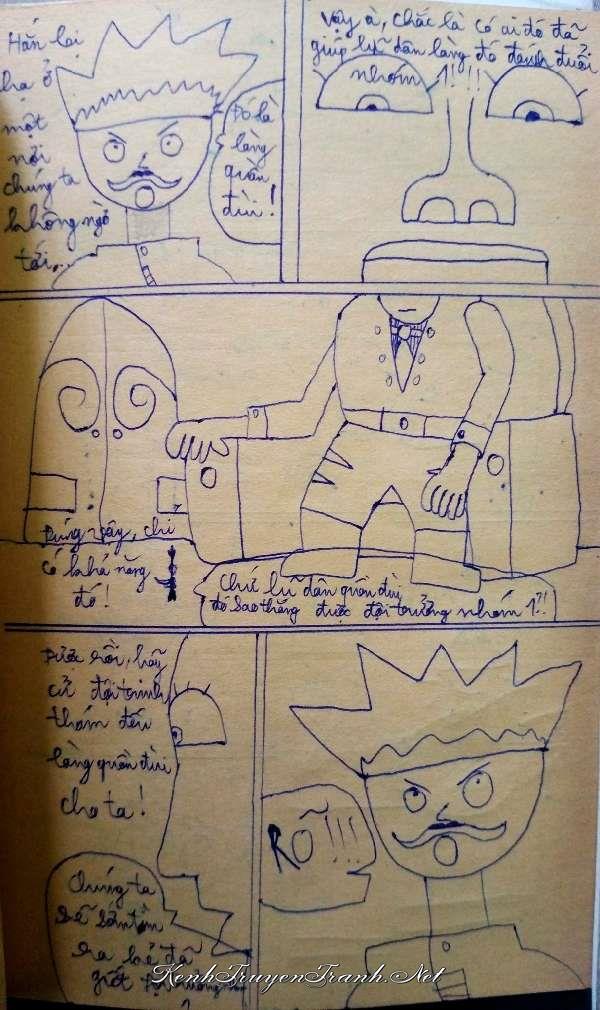 Hắn lại
hạ ở
một
nơi
chúng ta
không ngờ
tới...
Đó là
làng
quần
đùi!
Vậy à, chắc là có ai đó đã
giúp lũ dân làng đó đánh đuổi
nhóm 1!!!!
Đúng vậy, chỉ
có khả năng
đó!
Chứ lũ dân quần đùi
đó sao thắng được đội trưởng nhóm 1?!
Được rồi, hãy
cử đội trinh
thám đến
làng quần đùi
cho ta!
Chúng ta
sẽ săn tìm
ra kẻ đã
giết
RÕ!!!
KenhTruyenTranh.Net